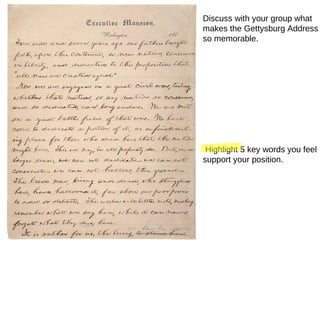 Executive Mansion,
Washington, 186
Four score and seven years ago our fathers brought
forth, upon this continent, a new nation, conceived
in liberty, and dedicated to the proposition that
"all men are created equal"
Now we are engaged in a great civil war, testing
whether that nation, or any nation so conceived,
and so dedicated, can long endure. We are met
on a great battle field of that war. We have
come to dedicate a portion of it, as a final rest-
ing place for those who died here, that the nation
might live. This we may, in all propriety do. But, in a
larger sense, we can not dedicate we can not
consecrate we can not hallow, this ground
The brave men, living and dead, who struggled
here, have hallowed it, far above our poor power
to add or detract. The world will little note, nor long
remember what we say here; while it can never
forget what they did here.
It is rather for us, the living, to stand here
Discuss with your group what
makes the Gettysburg Address
so memorable.
Highlight 5 key words you feel
support your position.